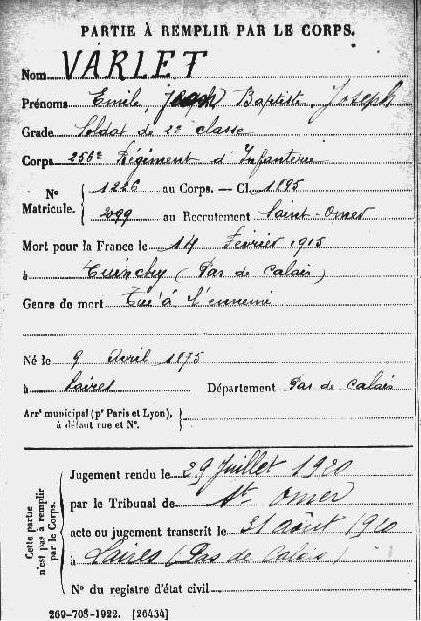 PARTIE À REMPLIR PAR LE CORPS.
Nom VARLET
Prénoms Emile, Baptiste, Joseph
Grade Soldat de 2e classe
Corps 256e Régiment d'Infanterie
N° Matricule. 1226 au Corps. — Cl. 1895
2099 au Recrutement Saint-Omer
Mort pour la France le 14 Février 1915
à Cuinchy (Pas de Calais)
Genre de mort Tué à l'ennemi
Né le 9 Avril 1875
à Laires Département Pas de Calais
Arrt municipal (pr Paris et Lyon), à défaut rue et N°.
Cette partie n'est pas à remplir par le Corps.
Jugement rendu le 29 Juillet 1920
par le Tribunal de St Omer
acte ou jugement transcrit le 31 août 1920
à Laires (Pas de Calais)
N° du registre d'état civil
269-708-1922. [26434]